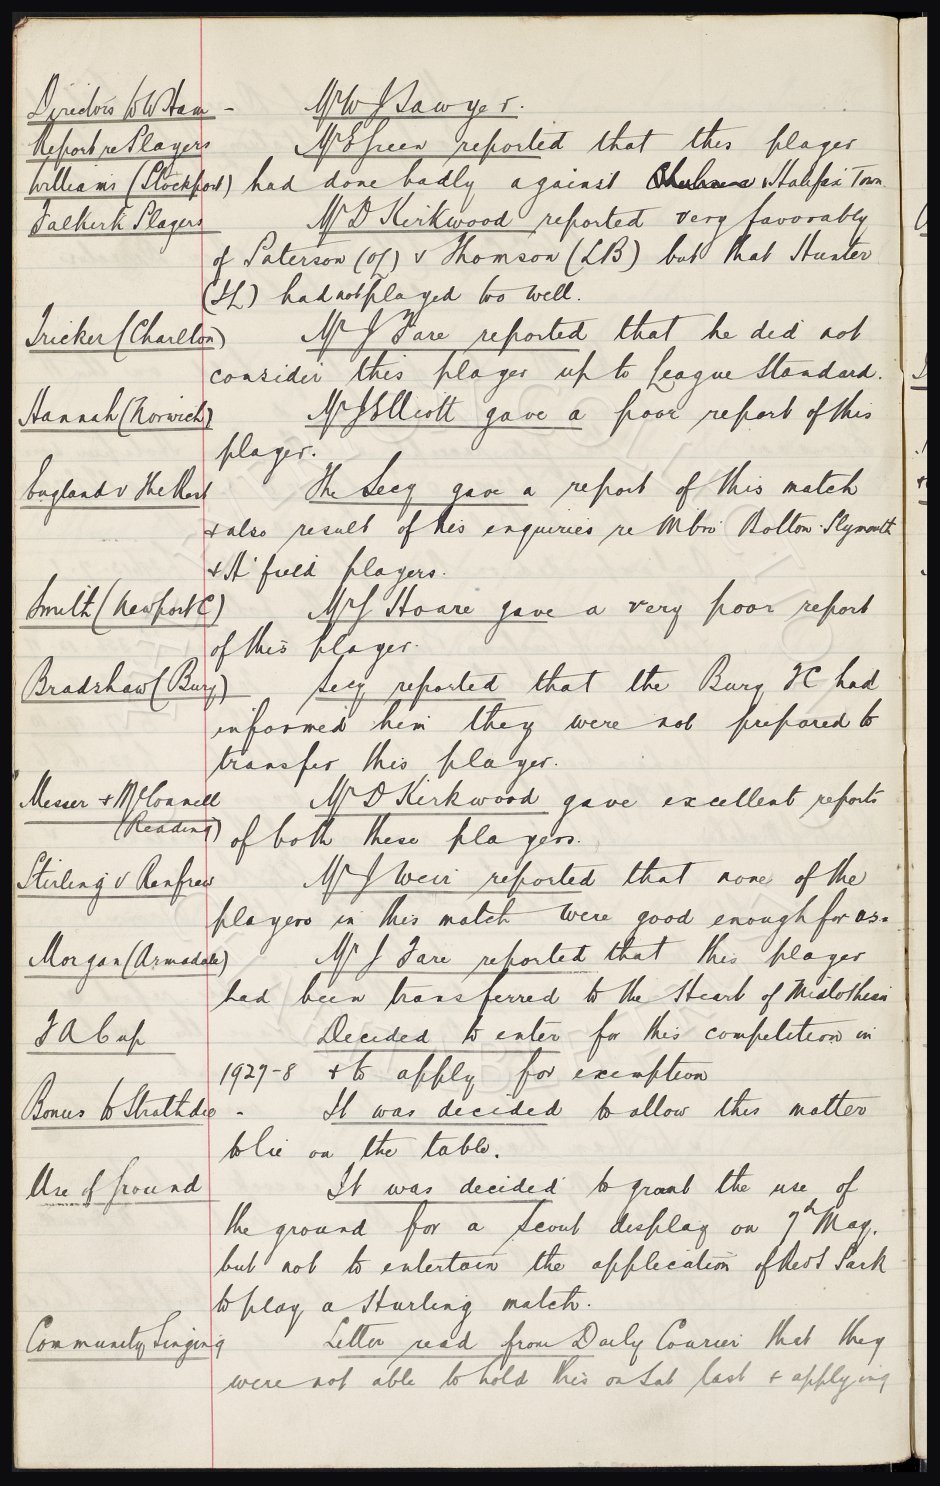 Directors to W Ham - Mr W J Sawyer.
Report re Players Mr E Green reported that this player
Williams (Stockport) had done badly against Halifax Town.
Falkirk Players Mr D Kirkwood reported very favorably
of Paterson (OL) v Thomson (LB) but that Hunter
(IL) had not played too well.
Tricker (Charlton) Mr J Fare reported that he did not
consider this player up to League Standard.
Hannah (Norwich) Mr J Elliott gave a poor report of this
player.
England v The Rest The Secy gave a report of this match
& also result of his enquiries re Mbro' Bolton Plymouth
& H'field players.
Smith (Newport C) Mr J Hoare gave a very poor report
of this player.
Bradshaw (Bury) Secy reported that the Bury FC had
informed him they were not prepared to
transfer this player.
Messer & McConnell Mr D Kirkwood gave excellent reports
(Reading) of both these players.
Stirling v Renfrew Mr J Weir reported that none of the
players in this match were good enough for us.
Morgan (Armadale) Mr J Fare reported that this player
had been transferred to the Heart of Midlothian
F A Cup Decided to enter for this competition in
1927-8 & to apply for exemption
Bonus to Strathdee - It was decided to allow this matter
to lie on the table.
Use of Ground It was decided to grant the use of
the ground for a Scout display on 7th May.
but not to entertain the application of Park
to play a Hurling match.
Community Singing Letter read from Daily Courier that they
were not able to hold this on Sat last & applying